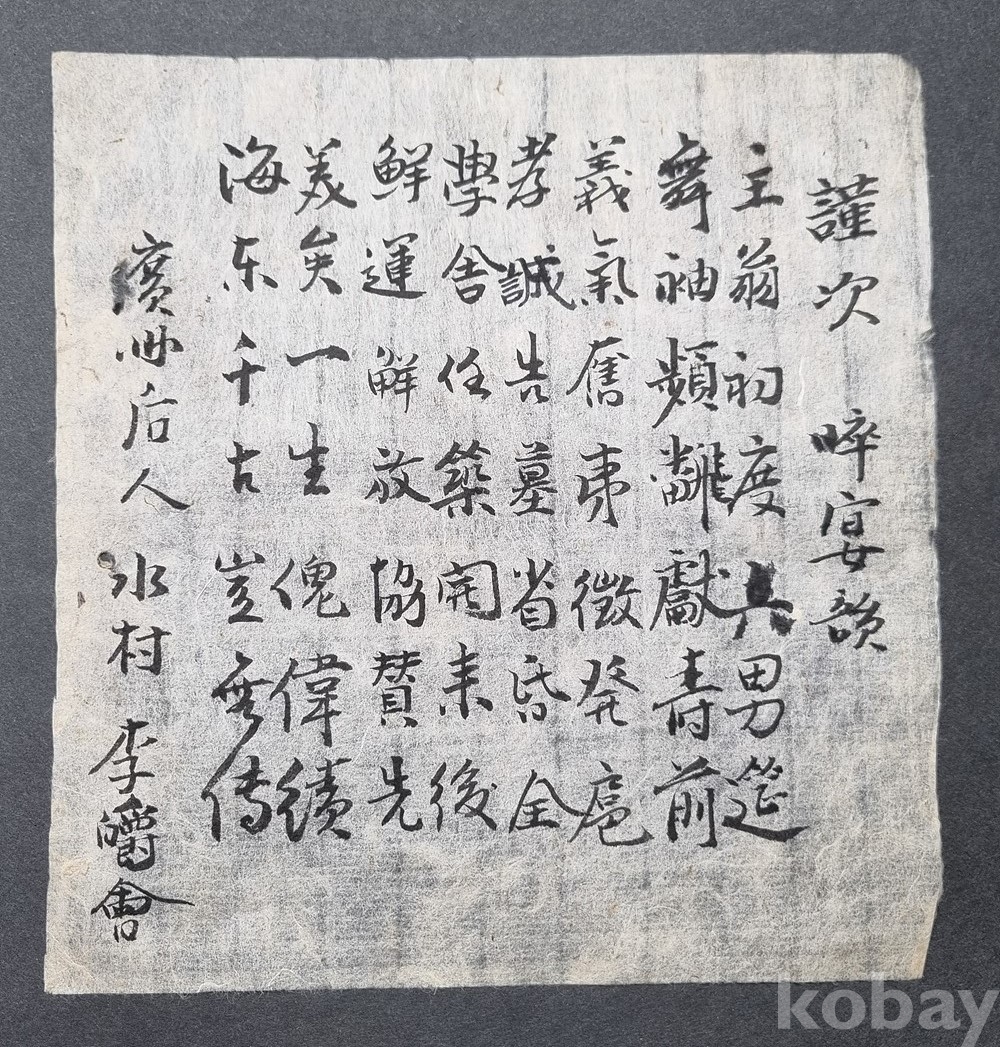 謹次 晬宴韻
主翁初度六男筵
舞袖頻飜獻壽前
義氣奮束徵發扈
孝誠告墓省昏全
學舍任築開来後
鮮運解放協賛先
美矣一生傀偉績
海东千古豈無傳
廣州后人 水村 李會
kobay